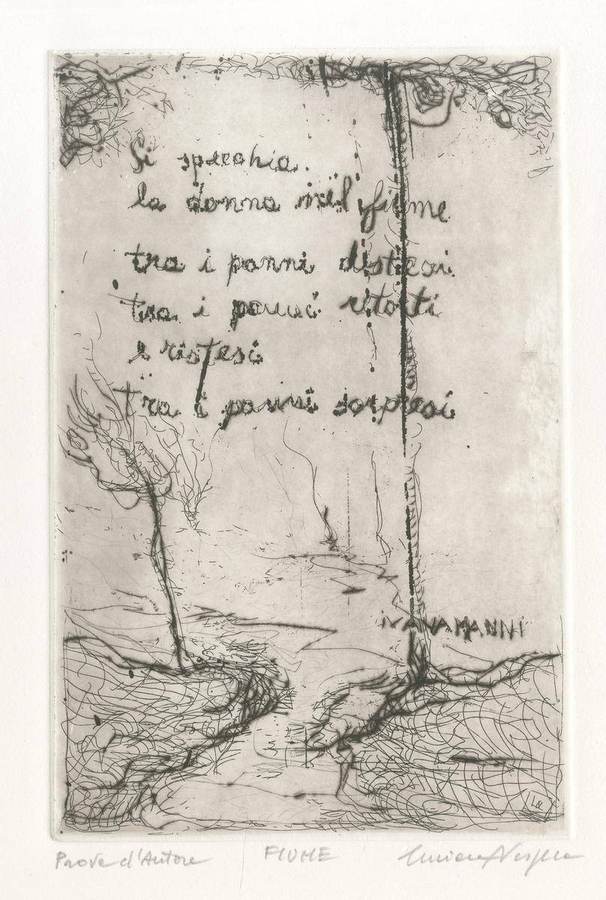 Si specchia
la donna nel fiume
tra i panni distesi
tra i panni ritorti
e ristesi
tra i panni sorpresi
IVANA MANNI
Prova d'Autore FIUME